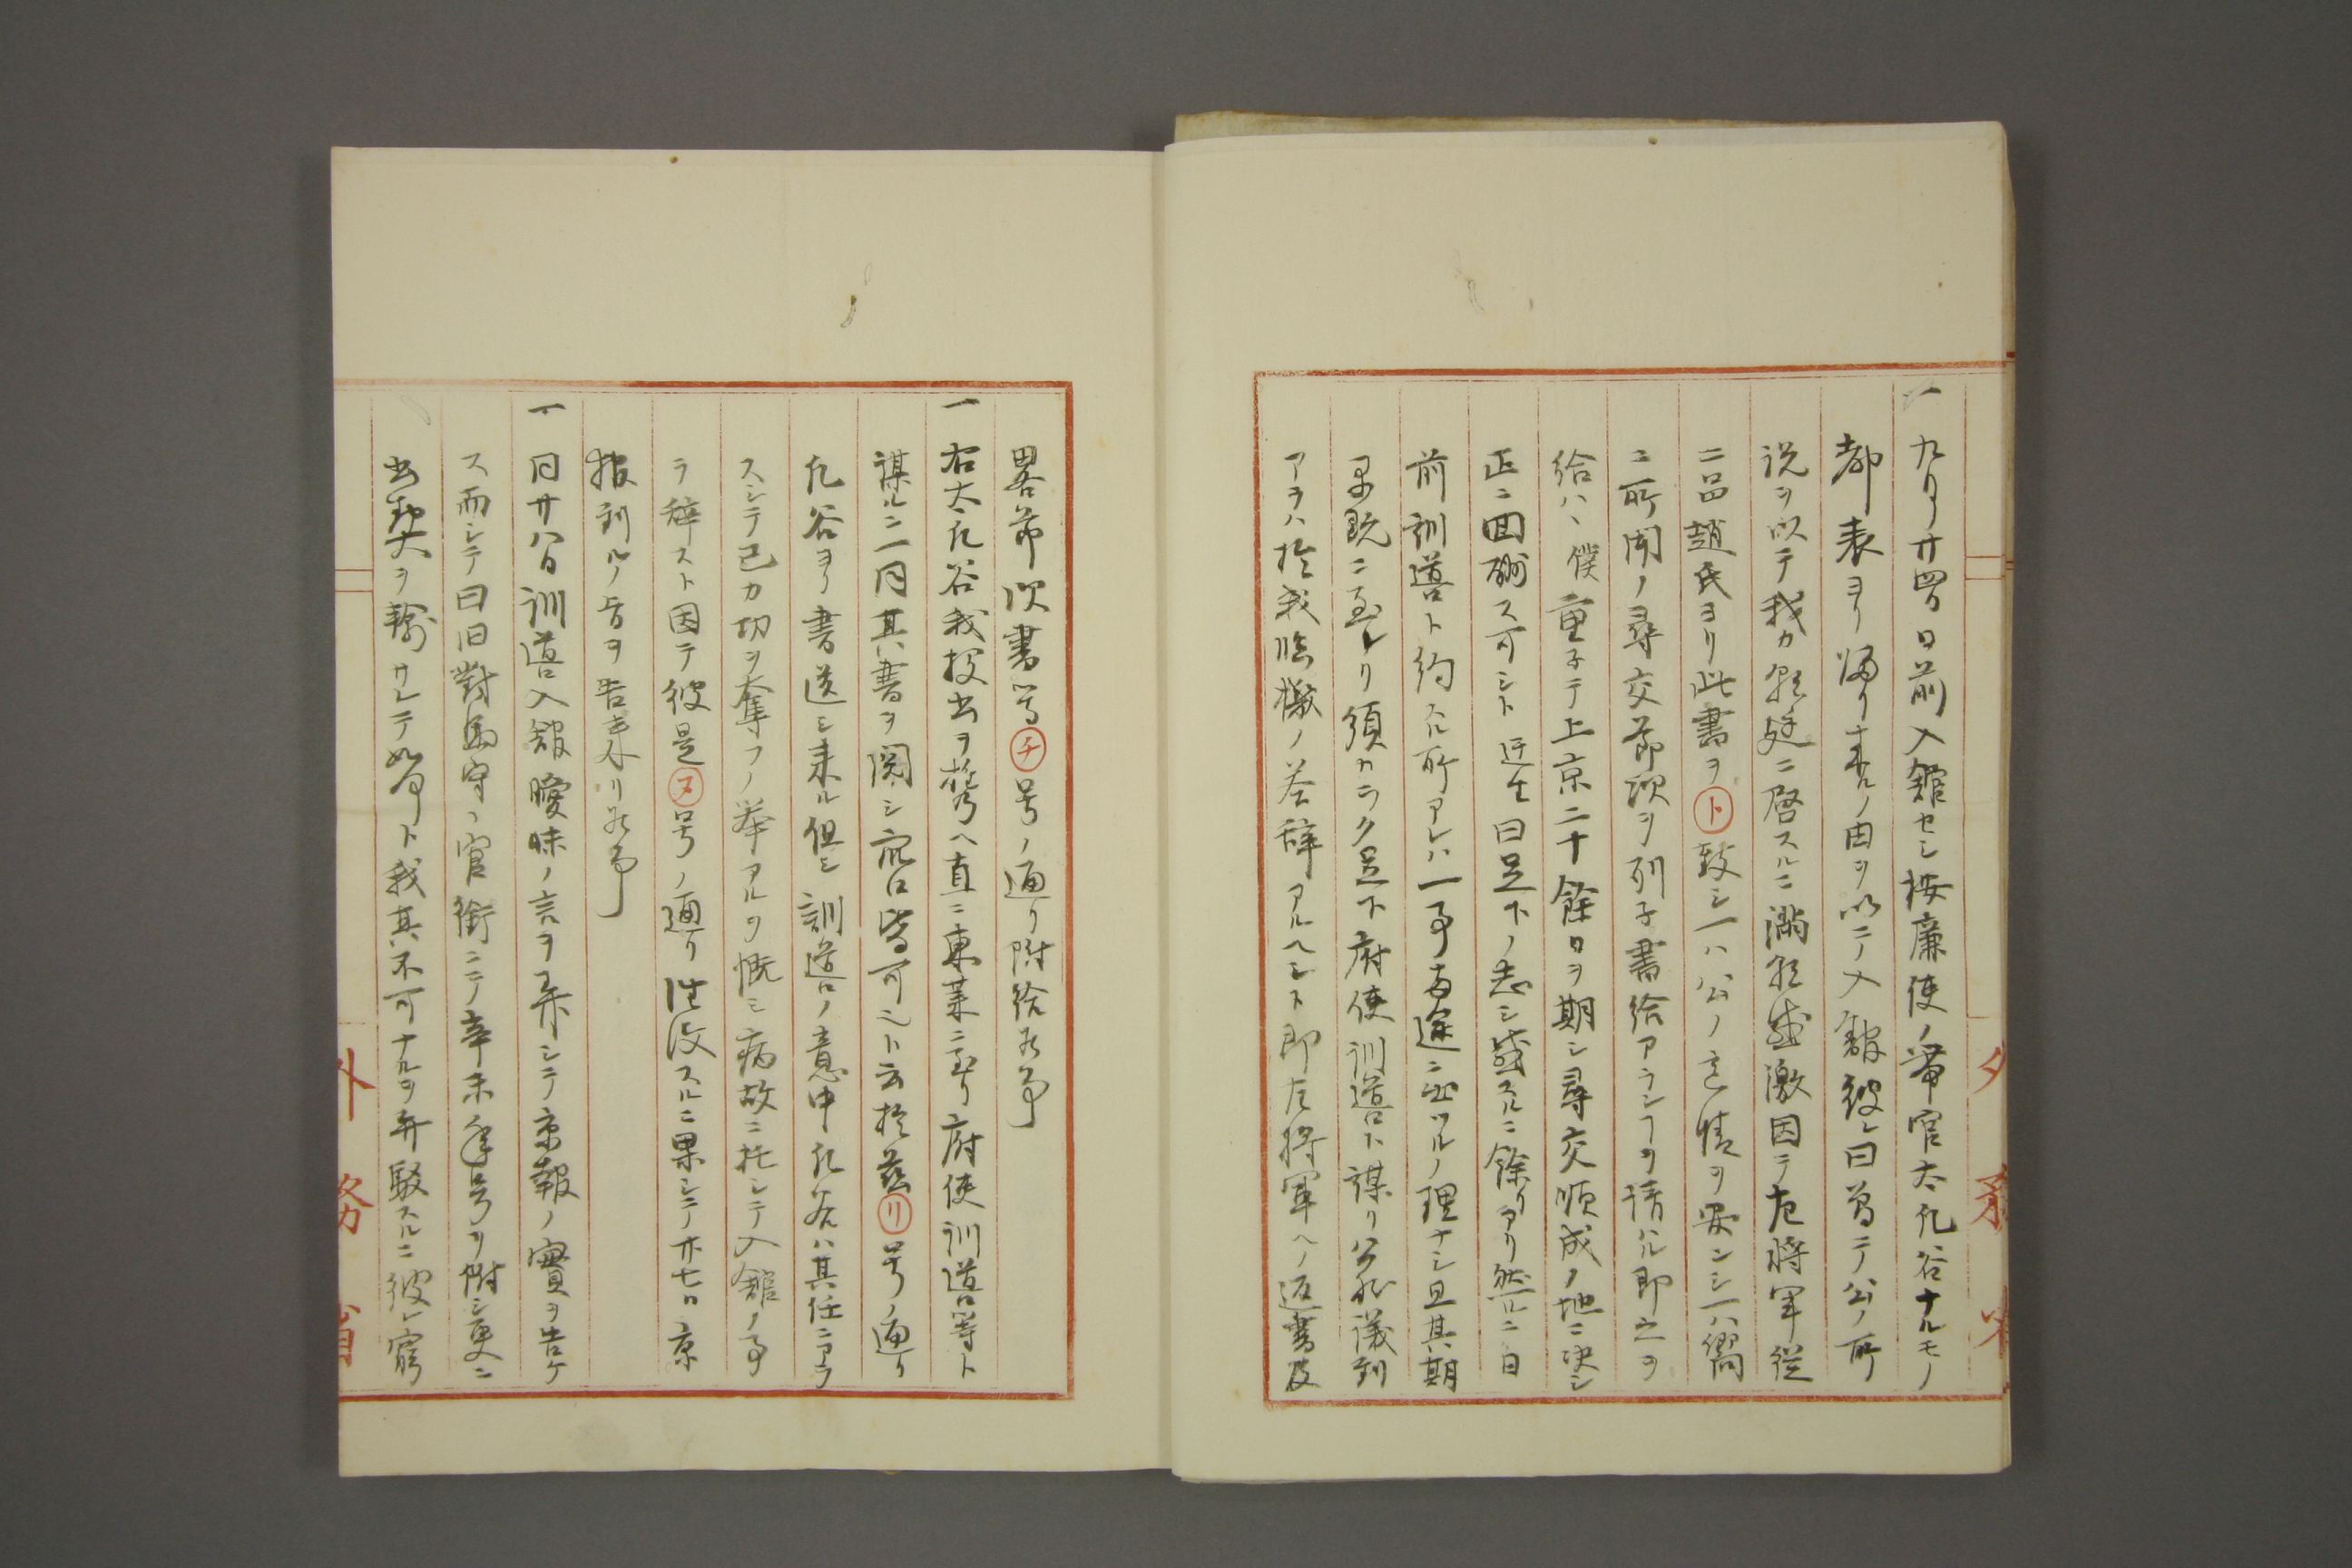 一 九月廿四日日前入館セシ按廉使ノ幕官大凡谷ナルモノ
都表ヨリ帰リ来ルノ由ヲ以テ入館彼レ曰曽テ公ノ所
説ヲ以テ我カ朝廷ニ啓スルニ満朝感激因テ左将軍従
二品趙氏ヨリ此書ヲ(ト)致シ一ハ公ノ ヲ安ンシ一ハ嚮
ニ所聞ノ尋交節次ヲ列子書給アラン ヲ請ハル即之ヲ
給ハヽ僕重子テ上京二十餘日ヲ期シ尋交順成ノ地ニ決シ
正ニ回酬ス可シト 曰足下ノ志シ感スルニ餘リアリ然ルニ日
前訓導ト約スル所アレハ一事両途ニ出ツルノ理ナシ且其期
既ニ至レリ須カラク足下府使訓導ト謀リ 議到
アラハ於我臨機ノ答辞アルヘシト即左将軍ヘノ返書及
畧節次書等(チ)号ノ通リ附給候事
一 右大凡谷我投書ヲ携ヘ直ニ東莱ニ至リ府使訓導等ト
謀ルニ一同其書ヲ閲シ衆口皆可シト云於茲(リ)号ノ通リ
凡谷ヨリ書送シ来ル但シ訓導ノ意中凡谷ハ其任ニアラ
スシテ己カ功ヲ奪フノ挙アルヲ慨シ病故ニ托シテ入館ノ事
ヲ辞スト因テ彼是(ヌ)号ノ通リ往復スルニ果シテ廿七日京
報到ルノ旨ヲ告来リ候事
一 同廿八日訓導入館曖昧ノ言ヲ弄シテ京報ノ實ヲ告ケ
ス而シテ曰旧對馬守ノ官銜ニテ辛未年号ヲ附シ更ニ
書契ヲ輸サレテ如何ト我其不可ナルヲ弁駁スルニ彼レ窮
外務省